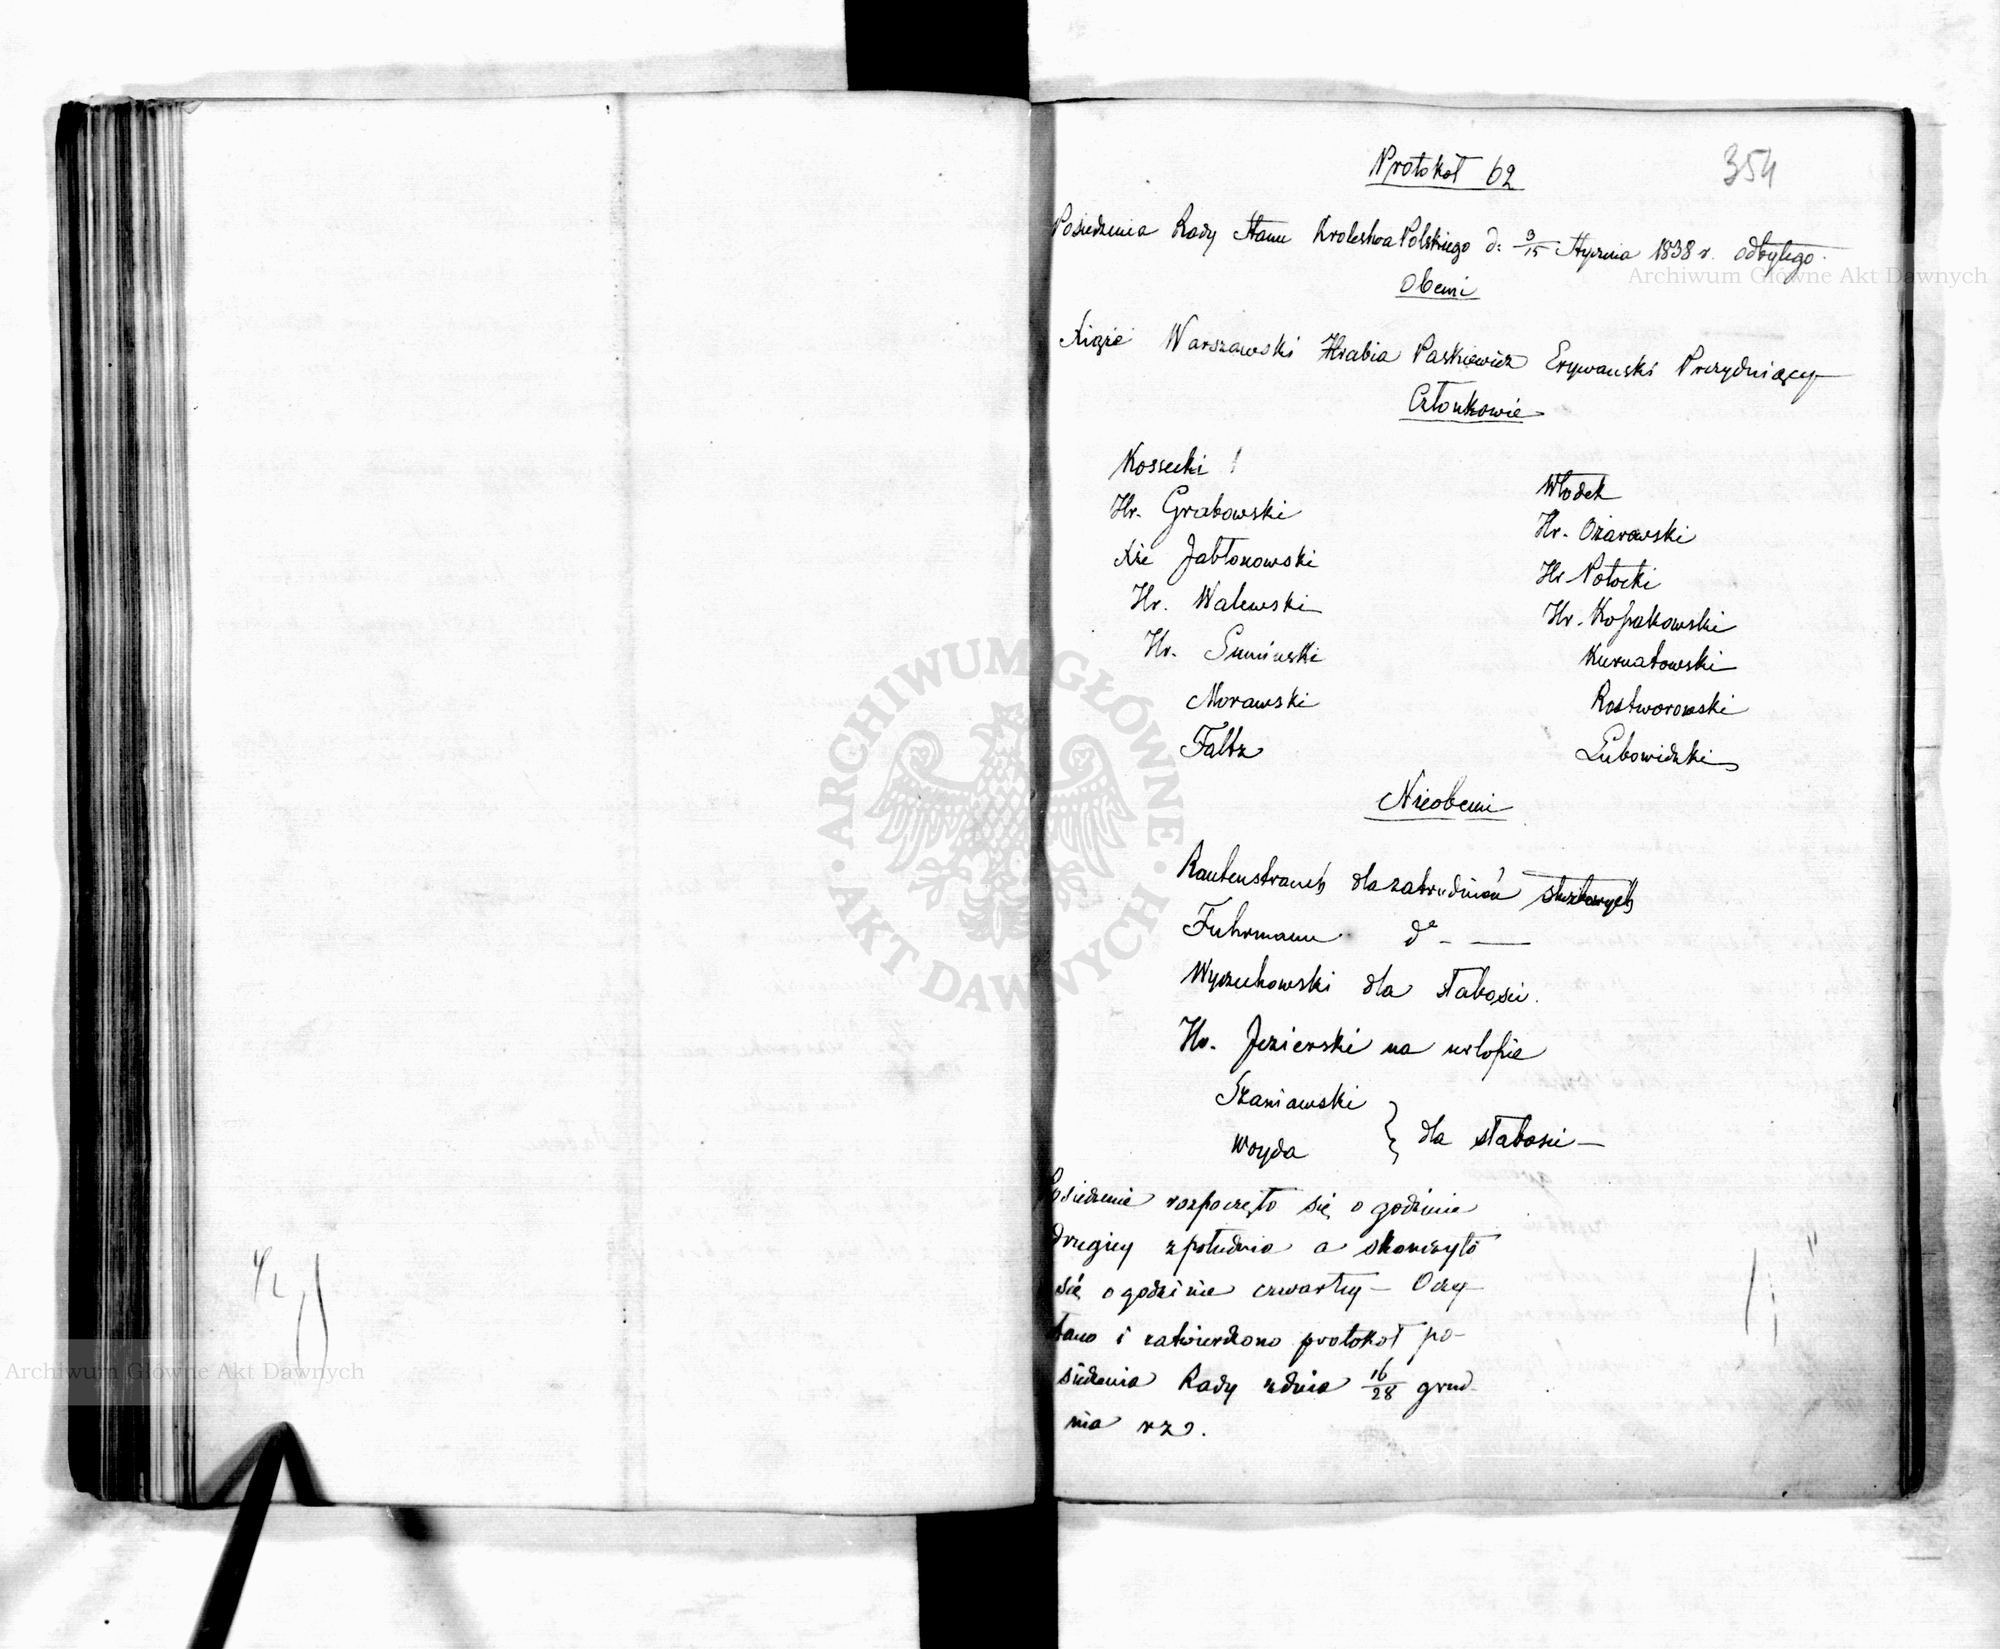 354
Protokół 62
Posiedzenia Rady Stanu Królestwa Polskiego d: 3/15 Stycznia 1838 r. odbytego.
Obecni
Xiąże Warszawski Hrabia Paskiewicz Erywański Prezydujący
Członkowie
Kossecki
Hr. Grabowski
Xże Jabłonowski
Hr. Walewski
Hr. Sumiński
Morawski
Faltz
Włodek
Hr. Ożarowski
Hr Potocki
Hr. Kossakowski
Kurnatowski
Rostworowski
Lubowidzki
Nieobecni
Rautenstrauch dla zatrudnień służbowych
Fuhrmann do - —
Wyczechowski dla słabości.
Hr. Jezierski na urlopie
Szaniawski
Woyda
dla słabości —
Posiedzenie rozpoczęło się o godzinie
drugiey z południa a skończyło
się o godzinie czwartey — Odczy
tano i zatwierdzono protokół po-
siedzenia Rady z dnia 16/28 grud-
nia r z.
ARCHIWUM GŁÓWNE AKT DAWNYCH
Archiwum Główne Akt Dawnych
Archiwum Główne Akt Dawnych